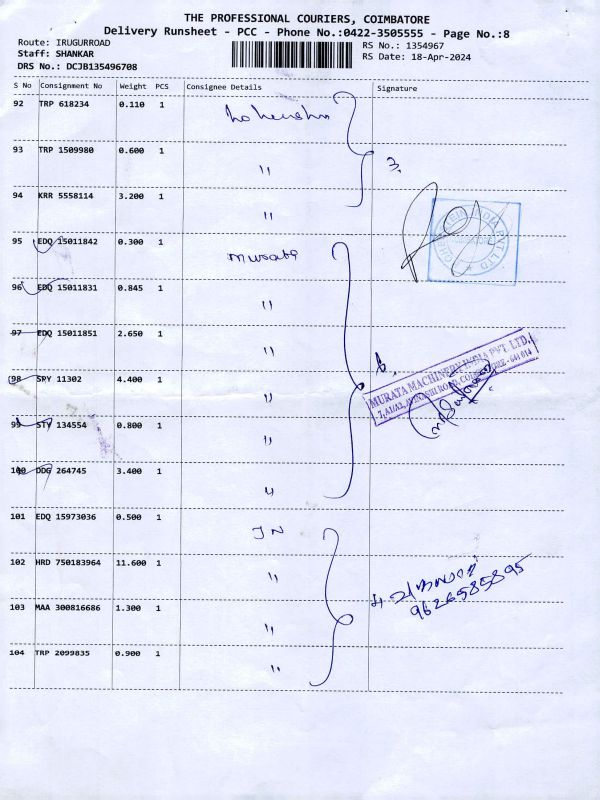 THE PROFESSIONAL COURIERS, COIMBATORE
Delivery Runsheet - PCC - Phone No.:0422-3505555 - Page No.:8
Route: IRUGURROAD
Staff: SHANKAR
DRS No.: DCJB135496708
RS No.: 1354967
RS Date: 18-Apr-2024
S No Consignment No Weight PCS Consignee Details Signature
92 TRP 618234 0.110 1
93 TRP 1509980 0.600 1 " 3.
94 KRR 5558114 3.200 1 "
95 EDQ 15011842 0.300 1 murata
96 EDQ 15011831 0.845 1 "
97 EDQ 15011851 2.650 1 "
6.
MURATA MACHINERY INDIA PVT. LTD.,
98 SPY 11302 4.400 1 "
99 STV 134554 0.800 1 "
100 DDG 264745 3.400 1 "
101 EDQ 15973036 0.500 1 JN
102 HRD 750183964 11.600 1 "
4
9626585895
103 MAA 300816686 1.300 1 "
104 TRP 2099835 0.900 1 "